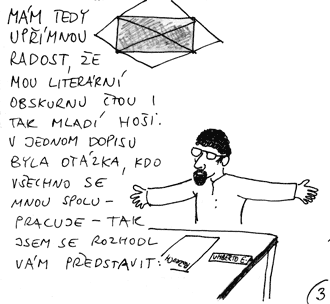 MÁM TEDY
UPŘÍMNOU
RADOST, ŽE
MOU LITERÁRNÍ
OBSKURNU ČTOU I
TAK MLADÍ HOŠI.
V JEDNOM DOPISU
BYLA OTÁZKA, KDO
VŠECHNO SE
MNOU SPOLU-
PRACUJE – TAK
JSEM SE ROZHODL
VÁM PŘEDSTAVIT:
UMBERTO E.
3